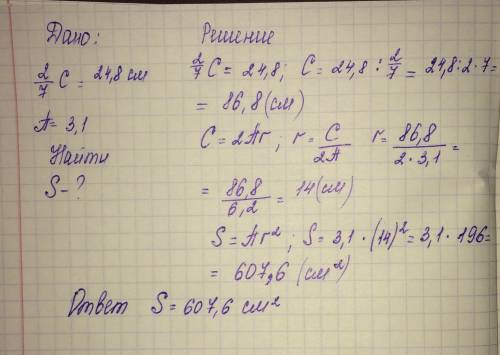 Дано:
2/7 C = 24,8 см
A = 3,1
Найти
S - ?
Решение
2/7 C = 24,8; C = 24,8 : 2/7 = 24,8 : 2 · 7 =
= 86,8 (см)
C = 2Ar; r = C/2A r = 86,8/2 · 3,1 =
= 86,8/6,2 = 14 (см)
S = Ar²; S = 3,1 · (14)² = 3,1 · 196 =
= 607,6 (см²)
Ответ S = 607,6 см²